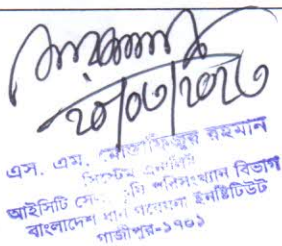 ২৮/০৩/২০২৩
এস. এম. মোস্তাফিজুর রহমান
সিস্টেম এনালিস্ট
আইসিটি সেল, কৃষি পরিসংখ্যান বিভাগ
বাংলাদেশ ধান গবেষণা ইনষ্টিটিউট
গাজীপুর-১৭০১